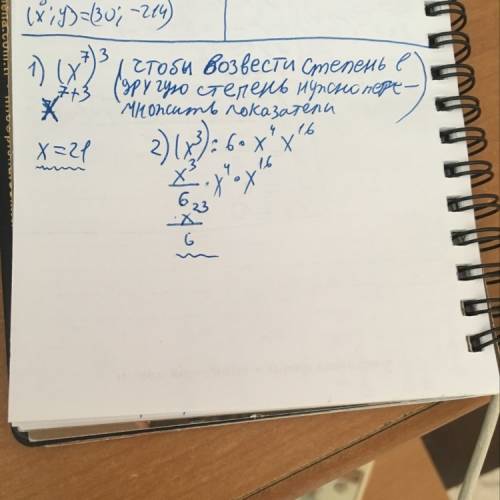 (x°; y)=(30; -214)
1) (x⁷)³ (чтобы возвести степень в
другую степень нужно пере-
множить показатели
x⁷⁺³
x=21
2) (x³):6·x⁴x¹⁶
x³/6·x⁴·x¹⁶
x²³/6